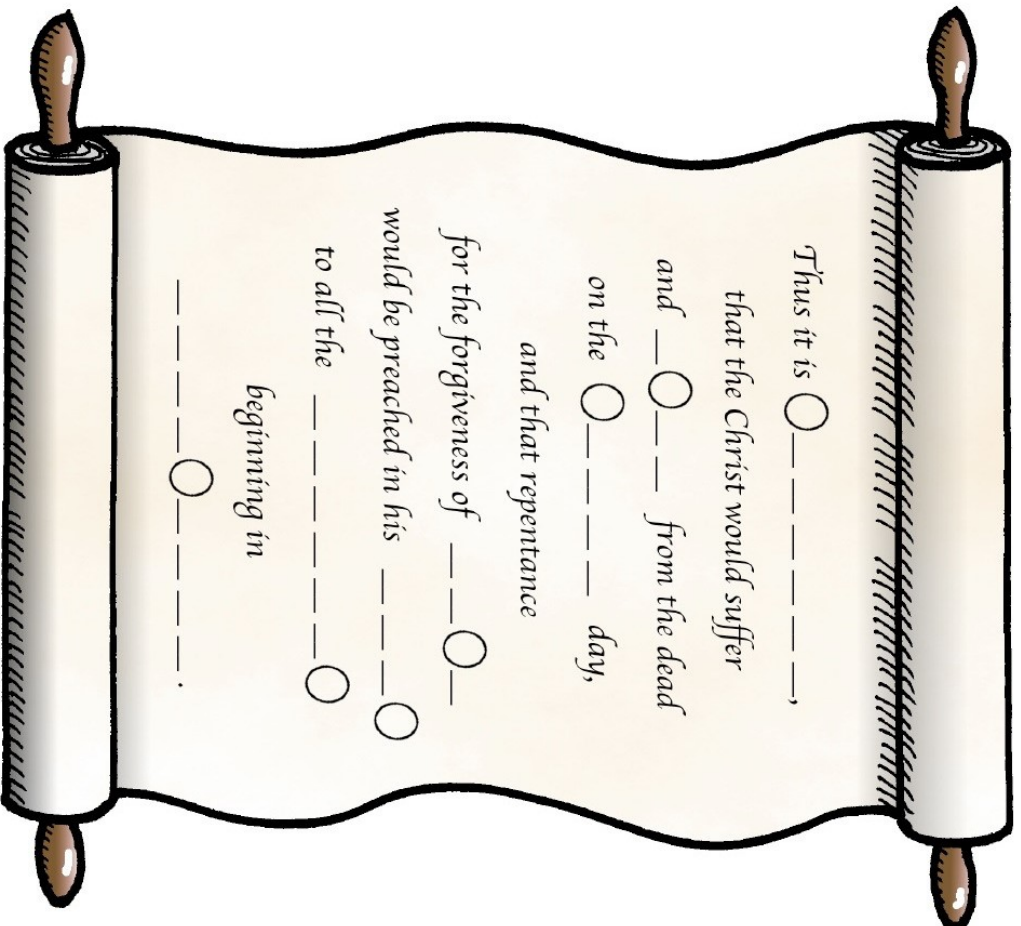 Thus it is O _ _ _ _ _ _,
that the Christ would suffer
and _ O _ _ from the dead
on the O _ _ _ _ day,
and that repentance
for the forgiveness of _ _ O _
would be preached in his _ _ _ O
to all the _ _ _ _ _ _ O
beginning in
_ _ _ _ O _ _ _ _ .